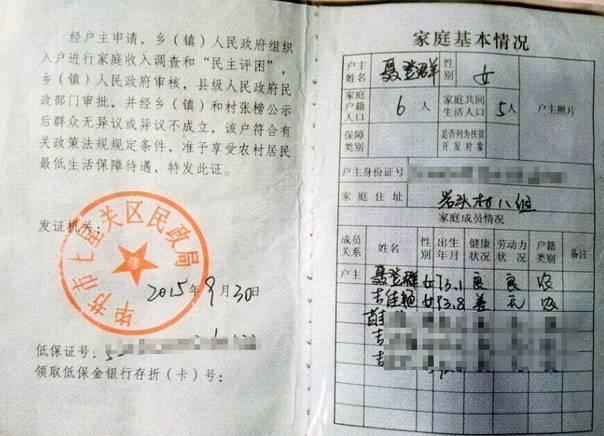 经户主申请，乡（镇）人民政府组织
入户进行家庭收入调查和“民主评困”，
乡（镇）人民政府审核，县级人民政府民
政部门审批，并经乡（镇）和村张榜公示
后群众无异议或异议不成立，该户符合有
关政策法规规定条件，准予享受农村居民
最低生活保障待遇，特发此证。
发证机关：
毕节市七星关区民政局
2015年9月30日
低保证号：
领取低保金银行存折（卡）号：
家庭基本情况
户主姓名 聂登群 性别 女 户主照片
家庭户籍人口 6人 家庭共同生活人口 5人
保障类别 是否列为扶贫开发对象
户主身份证号
家庭住址 岩头村八组
家庭成员情况
成员关系 姓名 性别 出生年月 健康状况 劳动力状况 户籍类别 备注
户主 聂登群 女 73.1 良 良 农
吉佳 女 农